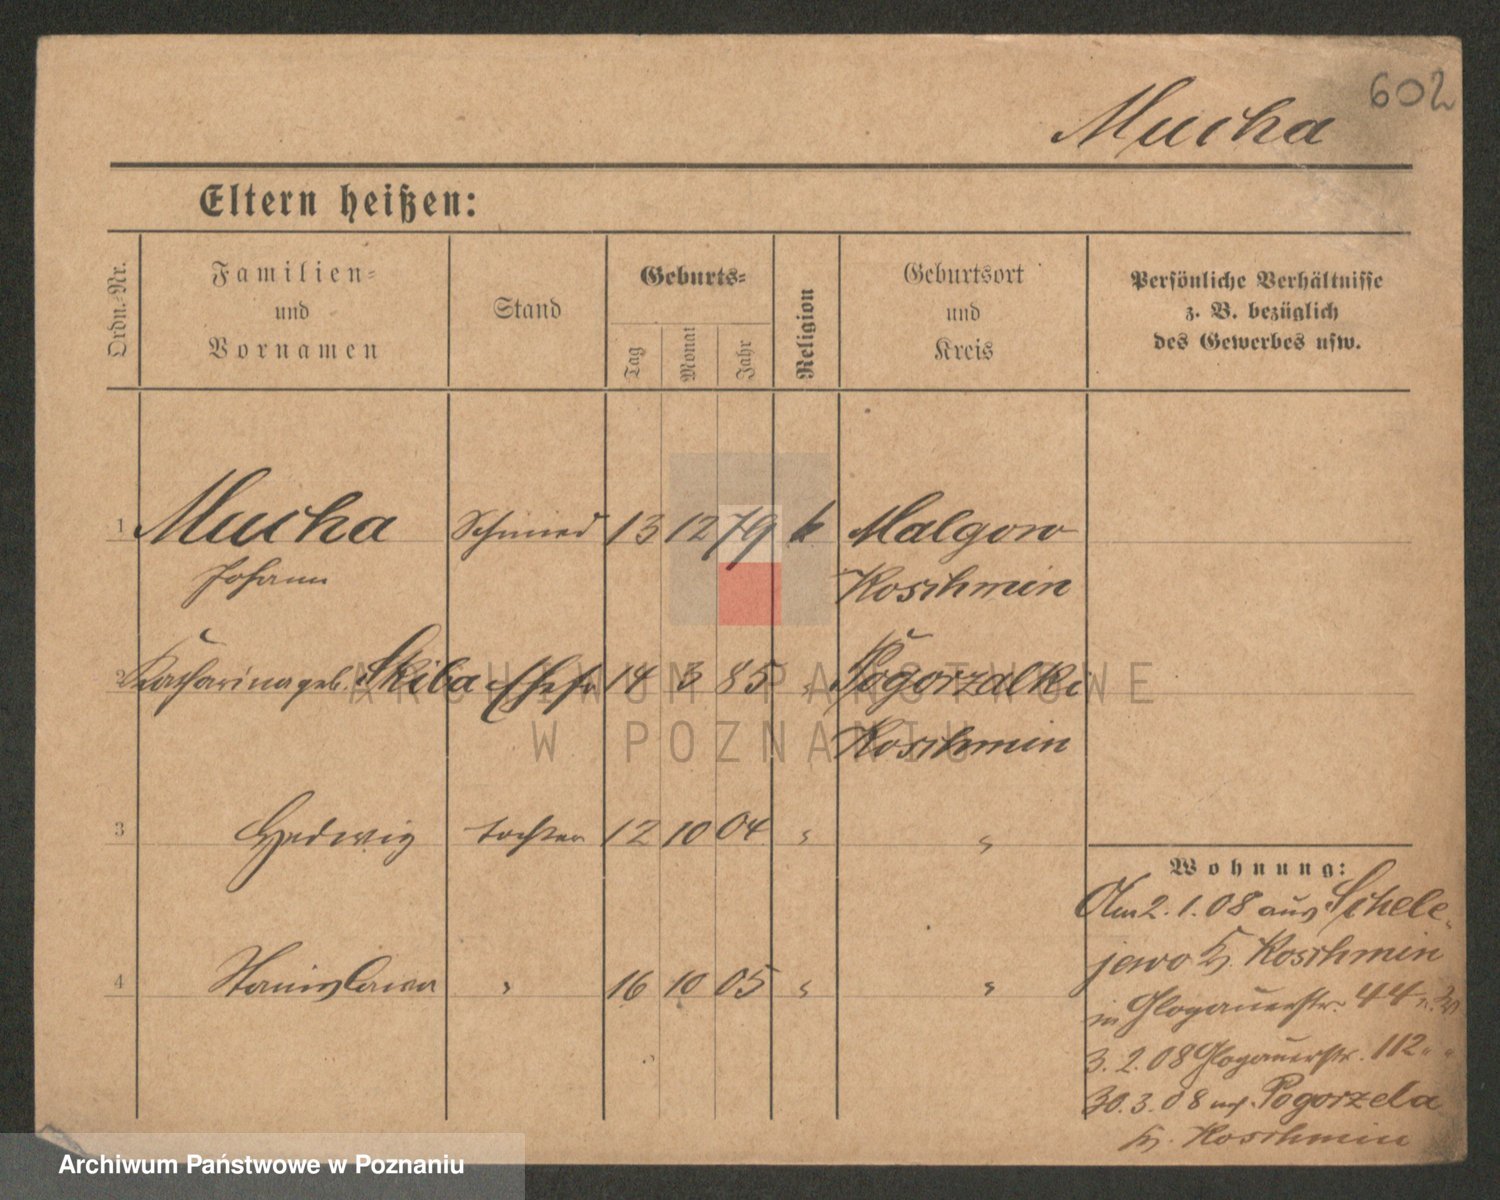 602
Mucha
Eltern heißen:
Ordn.-Nr.
Familien-
und
Vornamen
Stand
Geburts-
Tag
Monat
Jahr
Religion
Geburtsort
und
Kreis
Persönliche Verhältnisse
z. B. bezüglich
des Gewerbes usw.
1 Mucha Schmied 13 12 79 k Malgow
Johann Koschmin
2 Katharina geb. Skiba Ehefr 14 3 85 " Pogorzalki
Koschmin
3 Hedwig Tochter 12 10 04 " "
4 Stanislawa " 16 10 05 " "
Wohnung:
Am 2.1.08 aus Schele-
jewo Kr. Koschmin
in Glogauerstr. 44
3.2.08 Glogauerstr. 112 " "
30.3.08 n. Pogorzela
Kr. Koschmin
ARCHIWUM PAŃSTWOWE
W POZNANIU
Archiwum Państwowe w Poznaniu